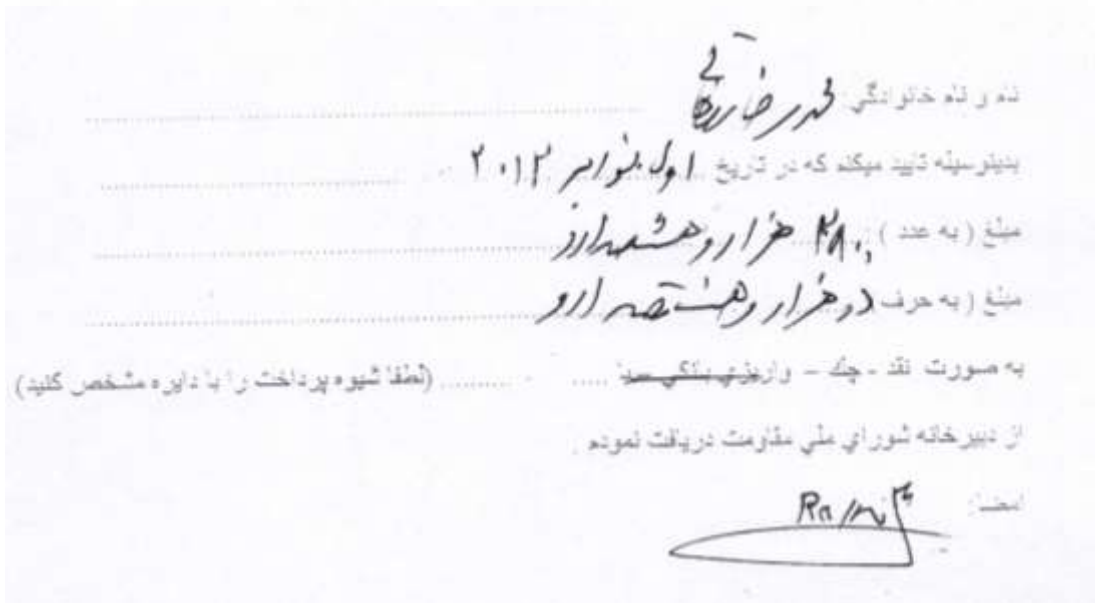 نام و نام خانوادگي: محمد رضا روحانی
بدينوسيله تاييد ميكنم كه در تاريخ اول نوامبر ۲۰۱۲
مبلغ ( به عدد ) : ۲۸۰۰ هزار و هشتصد
مبلغ ( به حرف ) دو هزار و هشتصد ارو
به صورت نقد - چك – واريزي بانكي سپا ..... (لطفا شيوه پرداخت را با دايره مشخص كنيد)
از دبيرخانه شوراي ملي مقاومت دريافت نمودم .
امضا: